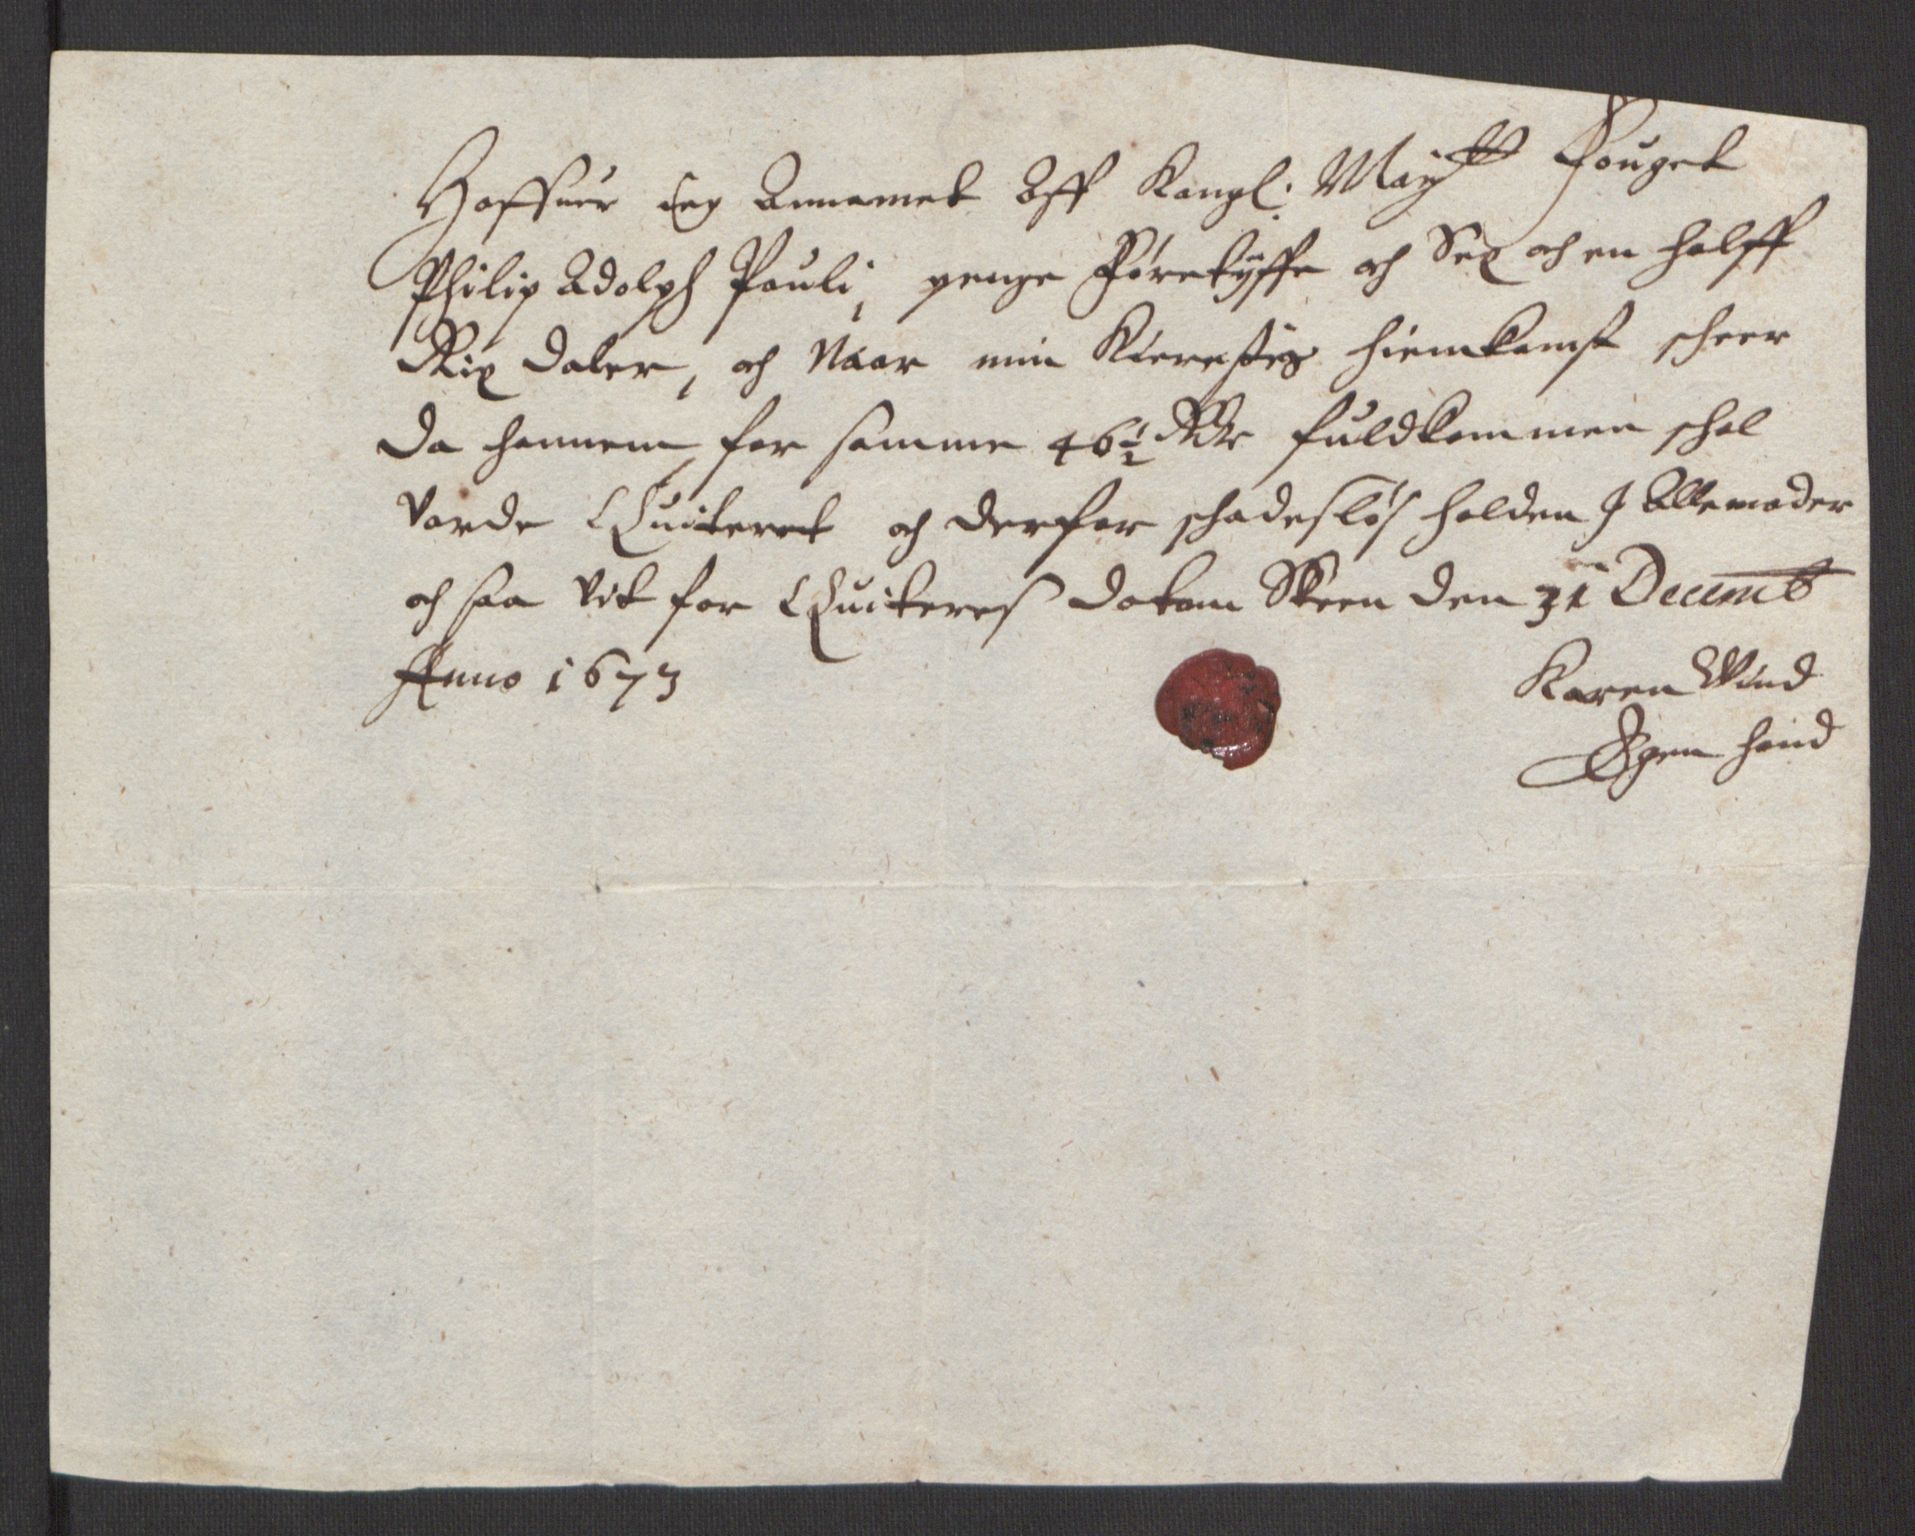 Haffuer ieg Annamet Aff Kongl: May:tt Fouget
Philip Adolph Pouli, penge Fõretÿffe och Sex och en halff
Rix daler, och Naar min Kiereste hiemkomst scheer
da hannem for samme 46½ Rdr fuldkommen schal
vorde Quiteret och derfor schadesløs holden J Allemader
och saa vit for Quiteres datom Skeen den 31 Decemb
Anno 1673
Karen Wind
Egen hand